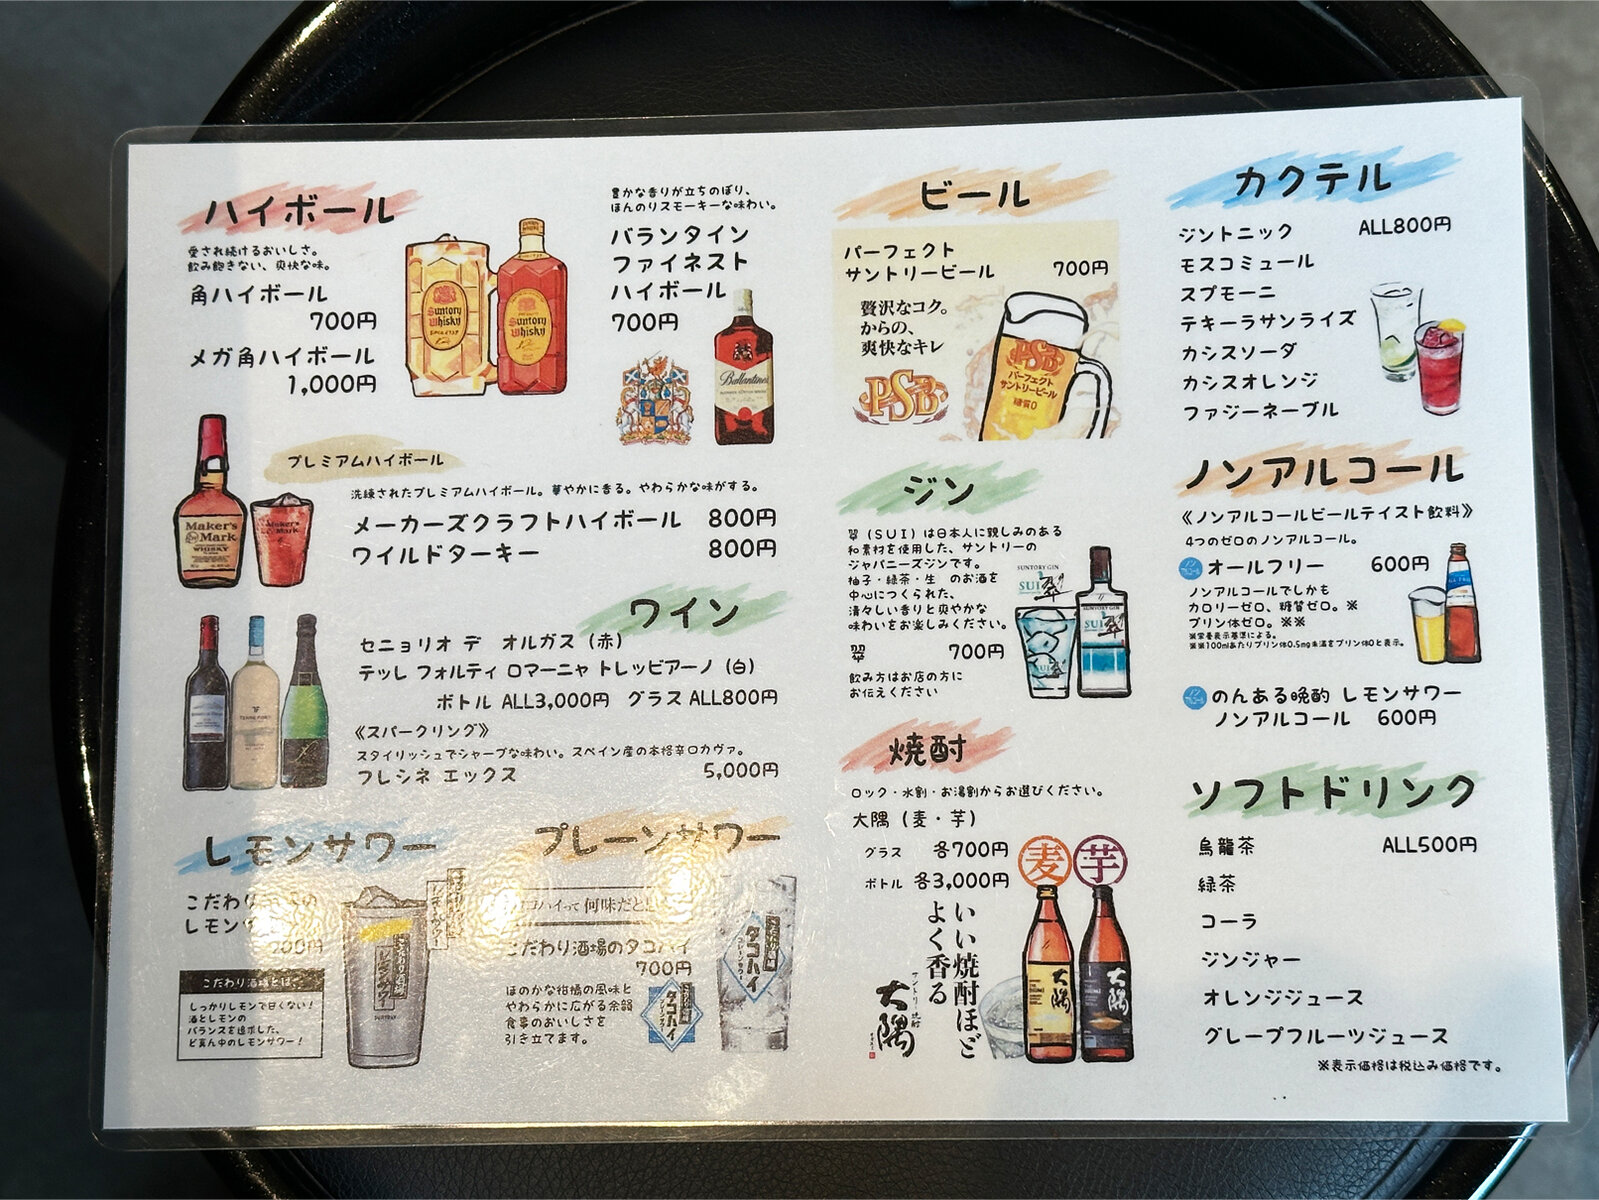 ハイボール
愛され続けるおいしさ。
飲み飽きない、爽快な味。
角ハイボール
700円
メガ角ハイボール
1,000円
Suntory
Whisky
Suntory
Whisky
豊かな香りが立ちのぼり、
ほんのりスモーキーな味わい。
バランタイン
ファイネスト
ハイボール
700円
Ballantine's
プレミアムハイボール
洗練されたプレミアムハイボール。華やかに香る。やわらかな味がする。
メーカーズクラフトハイボール 800円
ワイルドターキー 800円
Maker's
Mark
WHISKY
Maker's
Mark
ワイン
セニョリオ デ オルガス（赤）
テッレ フォルティ ロマーニャ トレッビアーノ（白）
ボトル ALL3,000円 グラス ALL800円
《スパークリング》
スタイリッシュでシャープな味わい。スペイン産の本格辛口カヴァ。
フレシネ エックス 5,000円
レモンサワー
こだわり
レモン
円
こだわり酒場とは、
しっかりレモンで甘くない！
酒とレモンの
バランスを追求した、
ど真ん中のレモンサワー！
プレーンサワー
何味だと
こだわり酒場のタコハイ
700円
ほのかな柑橘の風味と
やわらかに広がる余韻
食事のおいしさを
引き立てます。
タコハイ
タコハイ
ビール
パーフェクト
サントリービール 700円
贅沢なコク。
からの、
爽快なキレ
PSB
PSB
パーフェクト
サントリービール
糖質0
ジン
翠（SUI）は日本人に親しみのある
和素材を使用した、サントリーの
ジャパニーズジンです。
柚子・緑茶・生 のお酒を
中心につくられた、
清々しい香りと爽やかな
味わいをお楽しみください。
翠 700円
飲み方はお店の方に
お伝えください
SUNTORY GIN
SUI 翠
SUNTORY GIN
SUI 翠
焼酎
ロック・水割・お湯割からお選びください。
大隅（麦・芋）
グラス 各700円
ボトル 各3,000円
麦
芋
いい焼酎ほど
よく香る
サントリー焼酎
大隅
大隅
大隅
カクテル
ジントニック ALL800円
モスコミュール
スプモーニ
テキーラサンライズ
カシスソーダ
カシスオレンジ
ファジーネーブル
ノンアルコール
《ノンアルコールビールテイスト飲料》
4つのゼロのノンアルコール。
オールフリー 600円
ノンアルコールでしかも
カロリーゼロ、糖質ゼロ。※
プリン体ゼロ。※※
※栄養表示基準による。
※※100mlあたりプリン体0.5mg未満をプリン体0と表示。
のんある晩酌 レモンサワー
ノンアルコール 600円
ソフトドリンク
烏龍茶 ALL500円
緑茶
コーラ
ジンジャー
オレンジジュース
グレープフルーツジュース
※表示価格は税込み価格です。